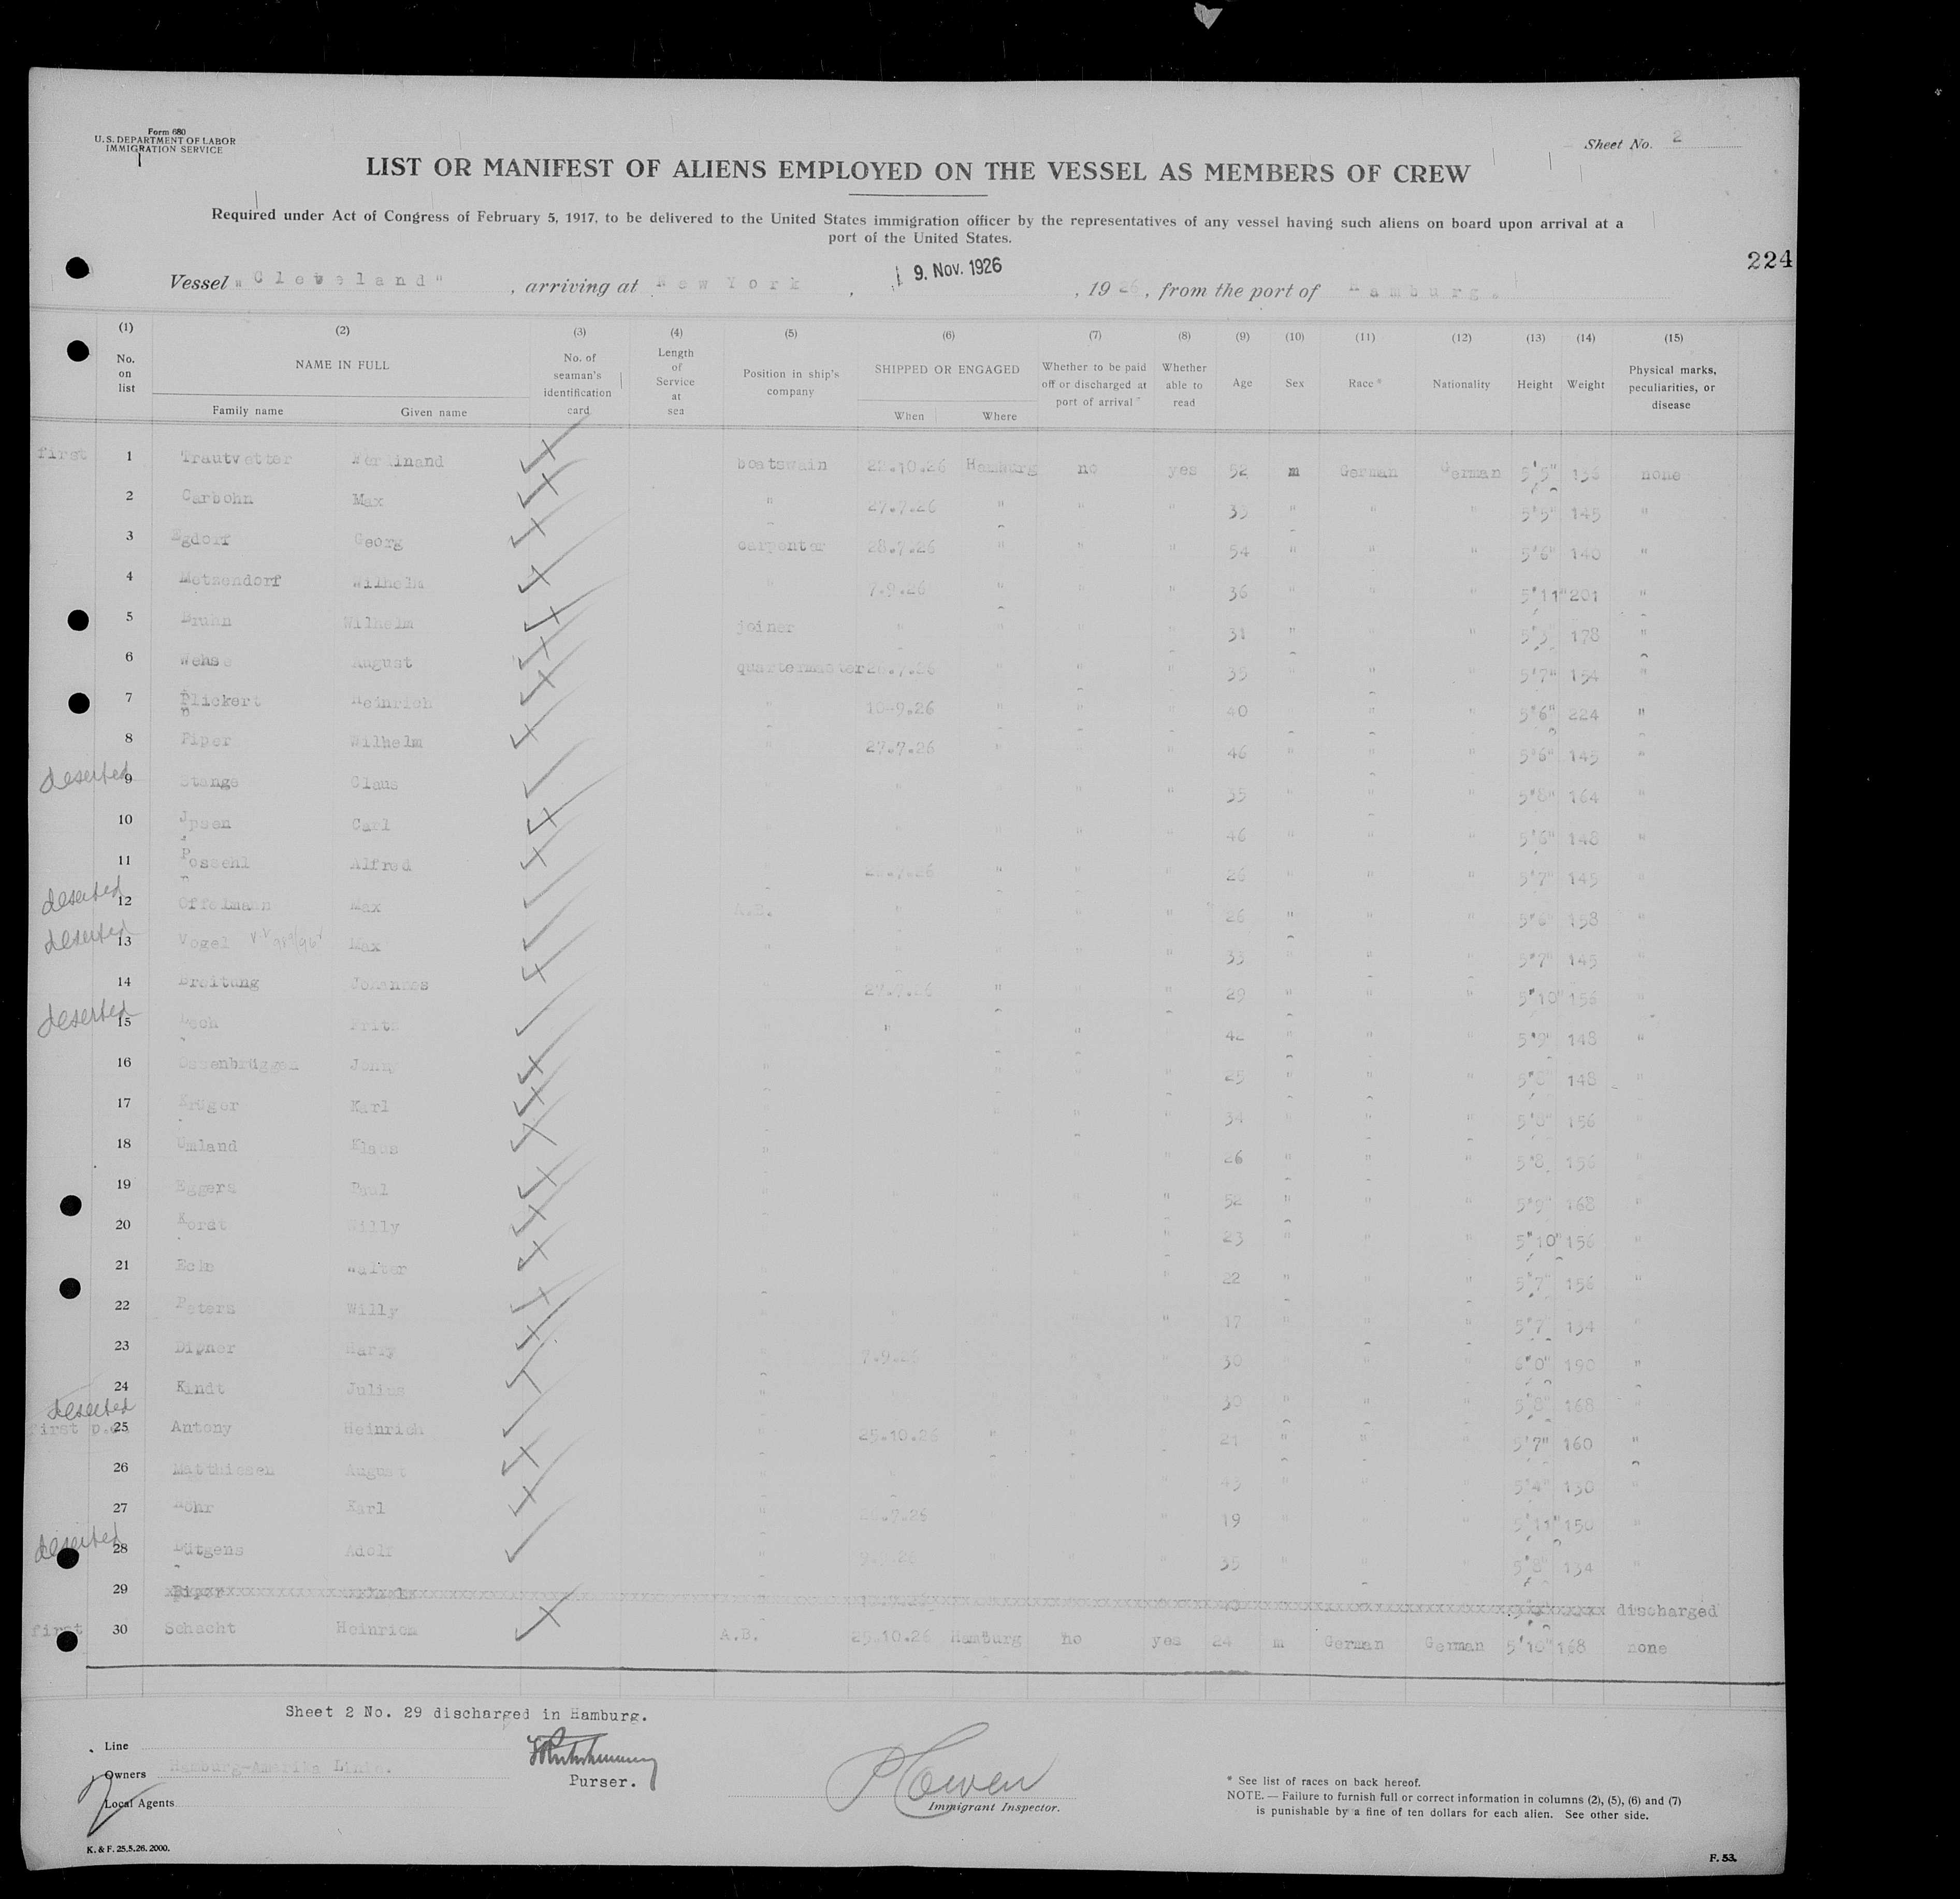 Form 680
U. S. DEPARTMENT OF LABOR
IMMIGRATION SERVICE
Sheet No. 2
LIST OR MANIFEST OF ALIENS EMPLOYED ON THE VESSEL AS MEMBERS OF CREW
Required under Act of Congress of February 5, 1917, to be delivered to the United States immigration officer by the representatives of any vessel having such aliens on board upon arrival at a
port of the United States.
224
Vessel "Cleveland", arriving at New York, 9. Nov. 1926, 1926, from the port of Hamburg.
(1) (2) (3) (4) (5) (6) (7) (8) (9) (10) (11) (12) (13) (14) (15)
No. on list NAME IN FULL Family name Given name No. of seaman's identification card Length of Service at sea Position in ship's company SHIPPED OR ENGAGED When Where Whether to be paid off or discharged at port of arrival Whether able to read Age Sex Race * Nationality Height Weight Physical marks, peculiarities, or disease
first 1 Trautvetter Ferdinand boatswain 22.10.26 Hamburg no yes 52 m German German 5'5" 136 none
2 Carbohn Max " 27.7.26 " " " " " " 5'5" 145 "
3 Egdorf Georg carpenter 28.7.26 " " " 54 " " " 5'6" 140 "
4 Metzendorf Wilhelm " 7.9.26 " " " 36 " " " 5'11" 201 "
5 Bruhn Wilhelm joiner " " " " 31 " " " 5'3" 178 "
6 Wehse August quartermaster " " " 35 " " " 5'7" 154 "
7 Flickert Heinrich " 10.9.26 " " " 40 " " " 5'6" 224 "
8 Piper Wilhelm " 27.7.26 " " " 46 " " " 5'6" 145 "
deserted 9 Stange Claus " " " " " 35 " " " 5'8" 164 "
10 Jpsen Carl " " " " " 46 " " " 5'6" 148 "
11 Possehl Alfred " " " " 26 " " " 5'7" 145 "
deserted 12 Offelmann Max A.B. " " " " 26 " " " 5'6" 158 "
deserted 13 Vogel Max " " " " " 33 " " " 5'7" 145 "
14 Breitung Johannes " 27.7.26 " " " 29 " " " 5'10" 156 "
deserted 15 Fritz " " " " " " " " 5'9" 148 "
16 Jonny " " " " " 25 " " " 5'8" 148 "
17 Krüger Karl " " " " " 34 " " " 5'8" 156 "
18 Umland Klaus " " " " " 26 " " " 5'8 156 "
19 Eggers Paul " " " " " 52 " " " 5'9" 168 "
20 Kordt Willy " " " " " 23 " " " 5'10" 156 "
21 Walter " " " " " 22 " " " 5'7" 156 "
22 Peters Willy " " " " " 17 " " " 5'7" 134 "
23 Harry " 7.9.26 " " " 30 " " " 6'0" 190 "
24 Kindt Julius " " " " " 30 " " " 5'8" 168 "
deserted first 25 Antony Heinrich " 25.10.26 " " " 21 " " " 5'7" 160 "
26 Matthiesen August " " " " " 43 " " " 5'4" 130 "
27 Karl " " " " 19 " " " 5'11" 150 "
deserted 28 Lütgens Adolf " " " " 35 " " " 5'8" 134 "
29 Piper discharged
first 30 Schacht Heinrich A.B. 25.10.26 Hamburg no yes 24 m German German 5'10" 168 none
Sheet 2 No. 29 discharged in Hamburg.
Line
Owners Hamburg-Amerika Linie.
Local Agents
Purser.
Immigrant Inspector.
* See list of races on back hereof.
NOTE. — Failure to furnish full or correct information in columns (2), (5), (6) and (7)
is punishable by a fine of ten dollars for each alien. See other side.
K. & F. 25.5.26. 2000.
F. 53.